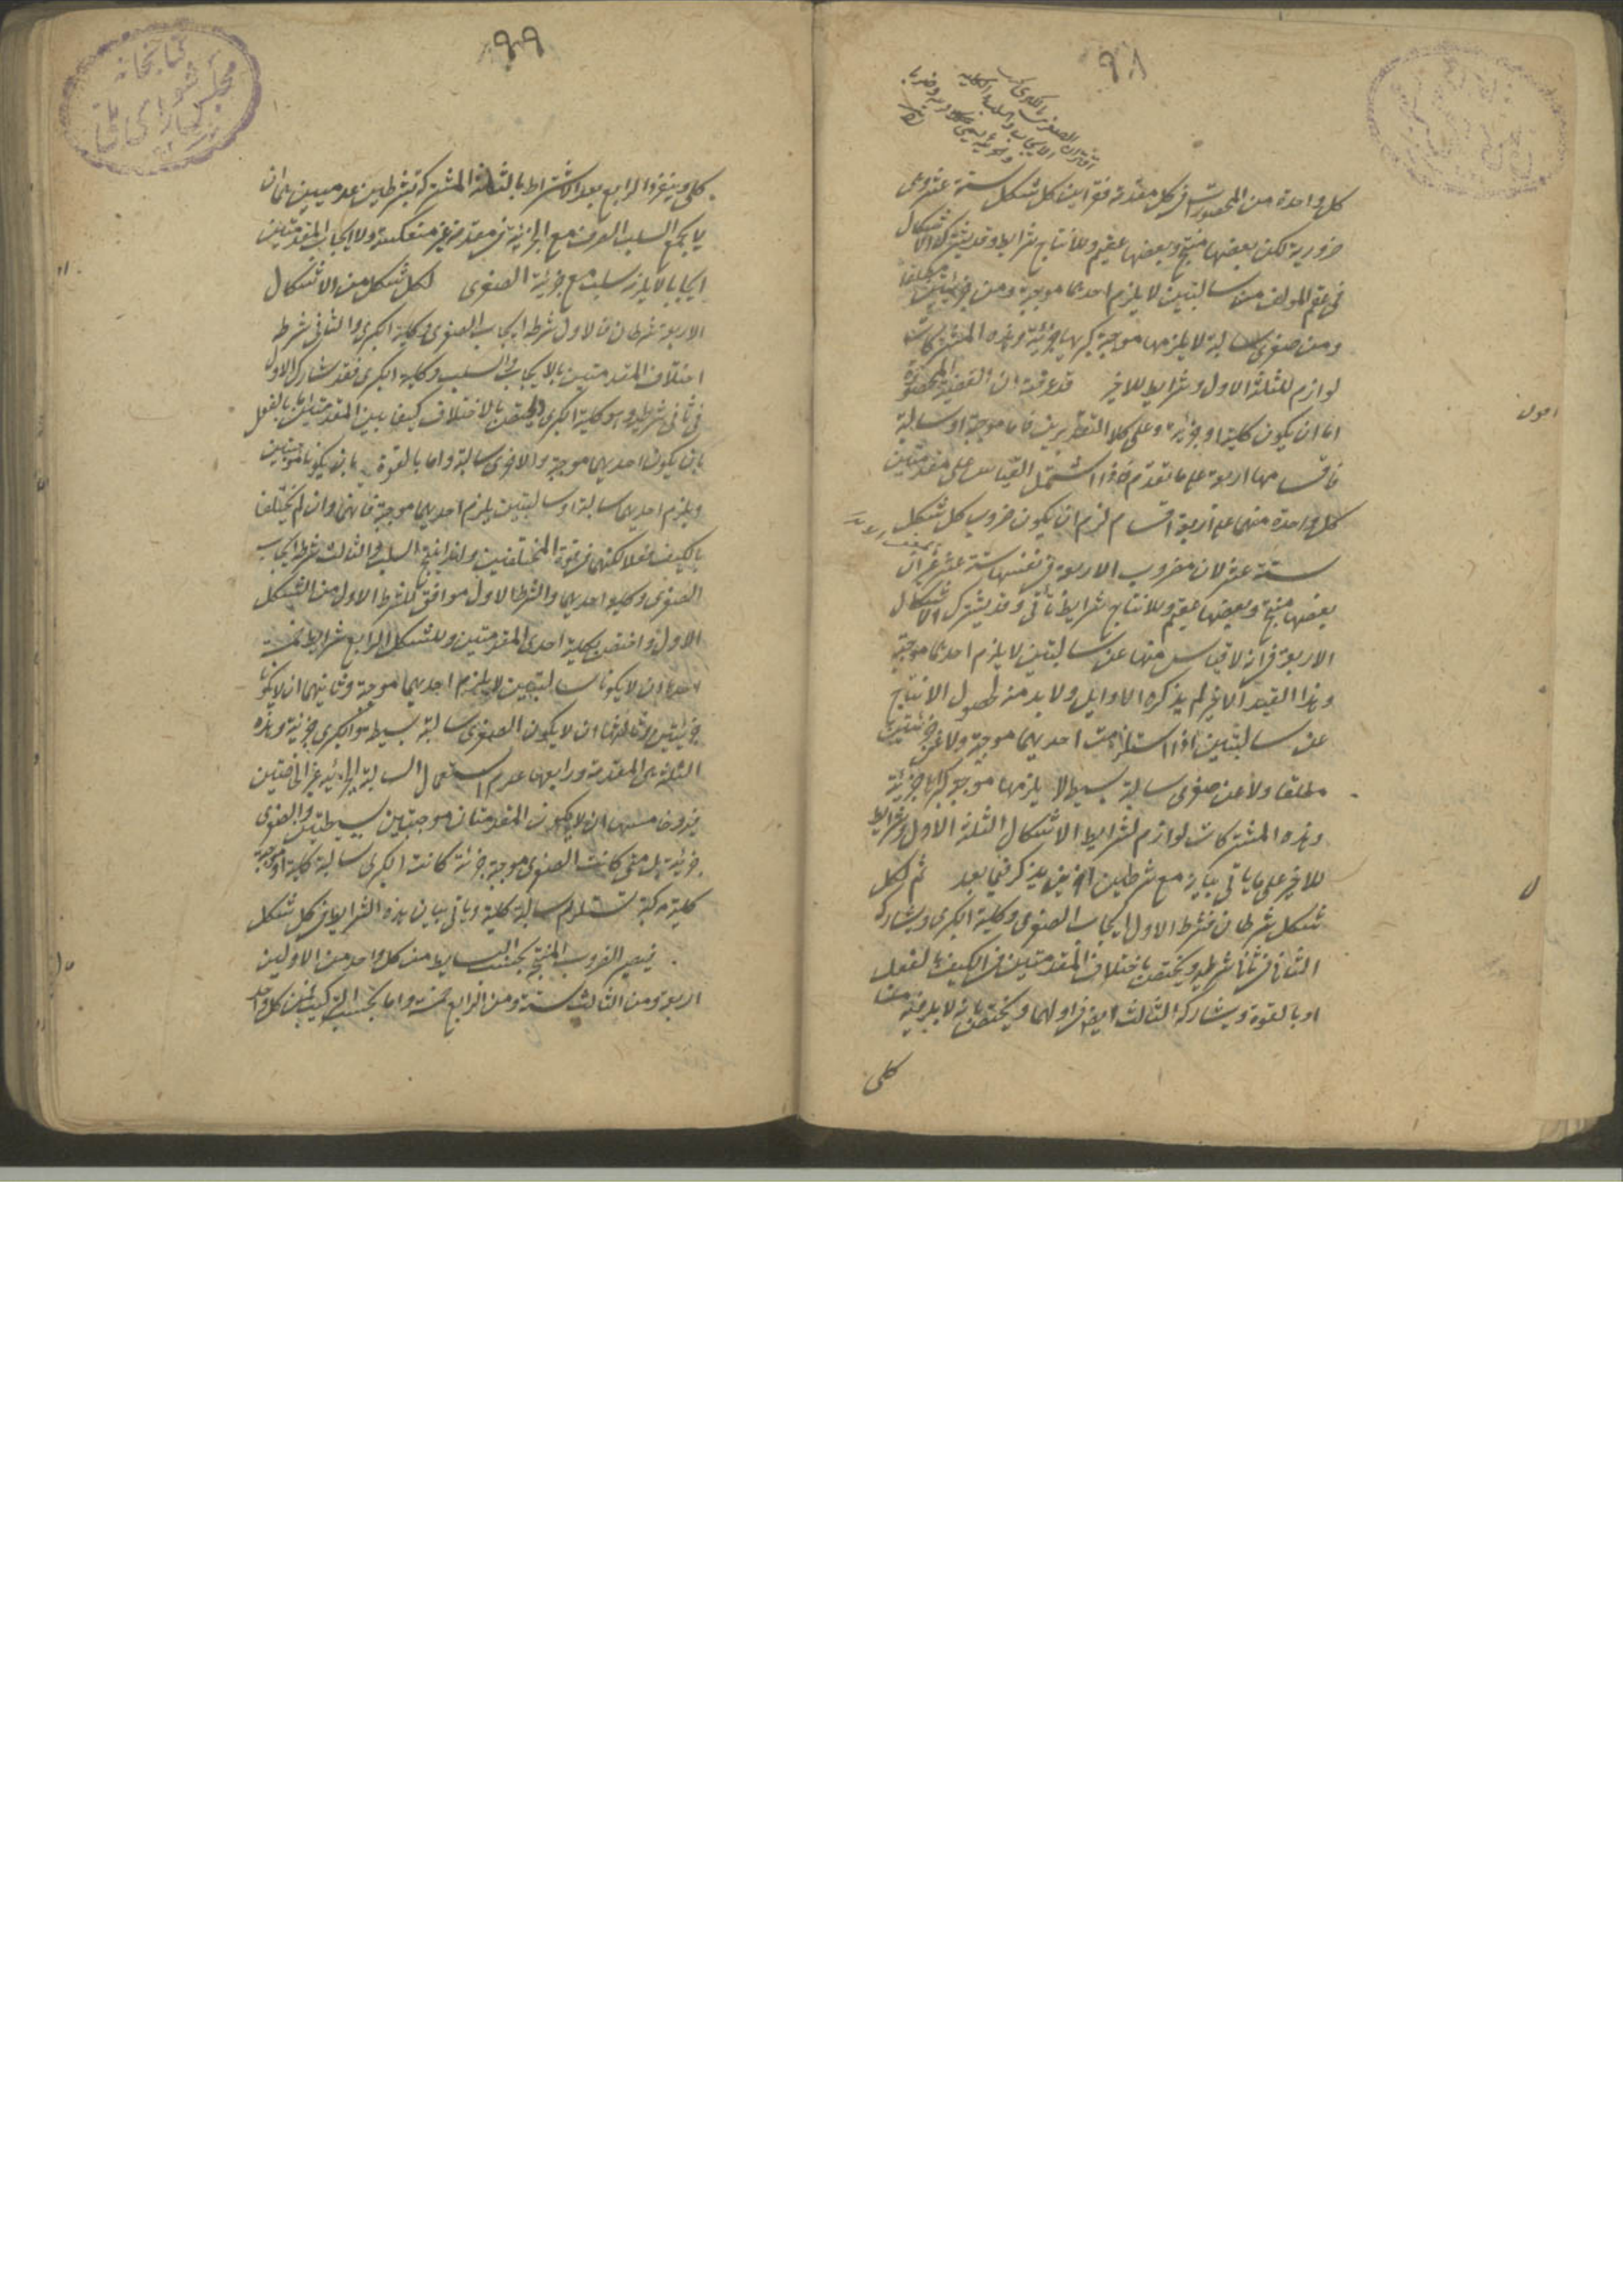 ٩٨
كل واحدة من المحصورات فى كل مقدمة فقراين كل شكل ستة عشر وهى
ضرورية لكن بعضها منتج وبعضها عقيم وللانتاج شرايط وقد يشترك الاشكال
فى عقم المولف من سالبتين لا يلزم احديهما موجبة ومن جزئيتين مطلقا
ومن صغرى سالبة لا يلزمها موجبة كبريها جزئية وهذه المشتركات
لوازم للثلثة الاول وشرايط للاخير قد عرفت ان القضية المحصورة
اما ان يكون كلية او جزئية وعلى كلا التقديرين فاما موجبة او سالبة
فاقسامها اربعة على ما تقدم فاذا اشتمل القياس على مقدمتين
كل واحدة منهما على اربعة اقسام لزم ان يكون ضروب كل شكل
ستة عشر لان مضروب الاربعة فى نفسها ستة عشر غير ان
بعضها منتج وبعضها عقيم وللانتاج شرايط تأتى وقد يشترك الاشكال
الاربعة فى انه لا قياس منها عن سالبتين لا يلزم احديهما موجبة
وهذا القيد الاخير لم يذكره الاوايل ولا بد منه لحصول الانتاج
عن سالبتين اذا استلزمت احديهما موجبة ولا عن جزئيتين
مطلقا ولا عن صغرى سالبة بسيطة لا يلزمها موجبة كبراها جزئية
وهذه المشتركات لوازم لشرايط الاشكال الثلثة الاول وشرايط
للاخير على ما يأتى بيانه مع شرطين اخرين يذكر فيما بعد ثم لكل
شكل شرطان فشرط الاول ايجاب الصغرى وكلية الكبرى ويشاركه
الثانى فى ثانى شرطيه ويختص باختلاف المقدمتين فى الكيف بالفعل
او بالقوة ويشاركه الثالث ايضا فى اولهما ويختص بانه لا بد فيه من
كلى
٩٩
كلى وينفرد الرابع بعد الاشتراط بالثلثة المشتركة بشرطين عدميين هما ان
لا يجمع السلب الصرف مع الجزئية فى مقدمة غير منعكسة ولا ايجاب المقدمتين
ايجابا لا يلزمه سلب مع جزئية الصغرى لكل شكل من الاشكال
الاربعة شرطان فالاول شرطه ايجاب الصغرى وكلية الكبرى والثانى شرطه
اختلاف المقدمتين بالايجاب والسلب وكلية الكبرى فقد شارك الاول
فى ثانى شرطيه وهو كلية الكبرى واختص بالاختلاف كيفا بين المقدمتين اما بالفعل
بان يكون احديهما موجبة والاخرى سالبة واما بالقوة بان يكونا موجبتين
ويلزم احديهما سالبة او سالبتين يلزم احديهما موجبة فانهما وان لم يختلفا
بالكيف فعلا لكنهما فى قوة المختلفتين ولهذا ينتج السلب والثالث شرطه ايجاب
الصغرى وكلية احديهما والشرط الاول موافق للشرط الاول من الشكل
الاول واختص بكلية احدى المقدمتين وللشكل الرابع شرايط خمسة
احدها ان لا يكونا سالبتين لا يلزم احديهما موجبة وثانيهما ان لا يكونا
جزئيتين وثالثها ان لا يكون الصغرى سالبة بسيطة والكبرى جزئية وهذه
الثلثة هى المقدمة ورابعها عدم استعمال السالبة الجزئية غير الخاصتين
فيه وخامسها ان لا يكون المقدمتان موجبتين بسيطتين والصغرى
جزئية بل متى كانت الصغرى موجبة جزئية كانت الكبرى سالبة كلية او موجبة
كلية مركبة تستلزم سالبة كلية ويأتى بيان هذه الشرايط فى كل شكل
فيصير الضروب المنتجة بحسب البسايط من كل واحد من الاولين
اربعة ومن الثالث ستة ومن الرابع خمسة واما بحسب التركيب فمن كل واحد
كتابخانه
مجلس شوراى ملى